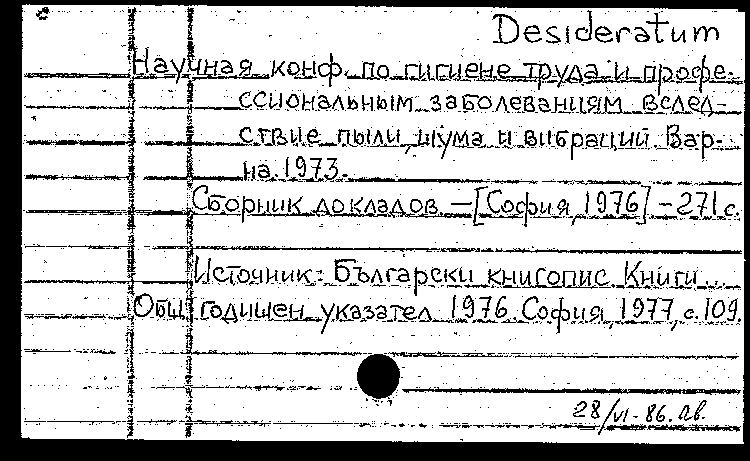 Desideratum
Научная конф. по гигиене труда и профе-
ссиональным заболеваниям вслед-
ствие пыли, шума и вибраций. Вар-
на. 1973.
Сборник докладов. — [София, 1976] – 271 с.
Източник: Български книгопис. Книги...
Общ годишен указател. 1976. София, 1977, с. 109.
28/VI-86.